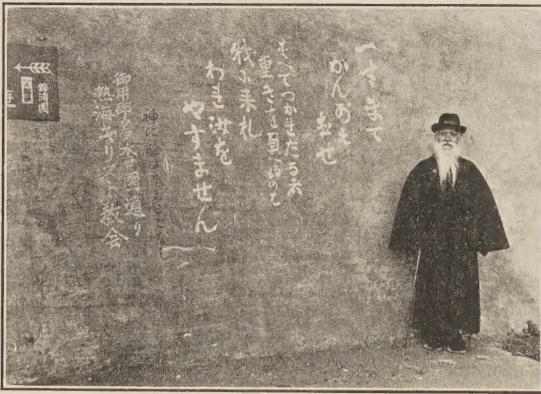 一寸まて
かんがえ直せ
すべてつかれたる者
重きを負へるもの
我に来れ
われ汝を
やすません
神は愛
御用邸前水口園通り
熱海キリスト教会